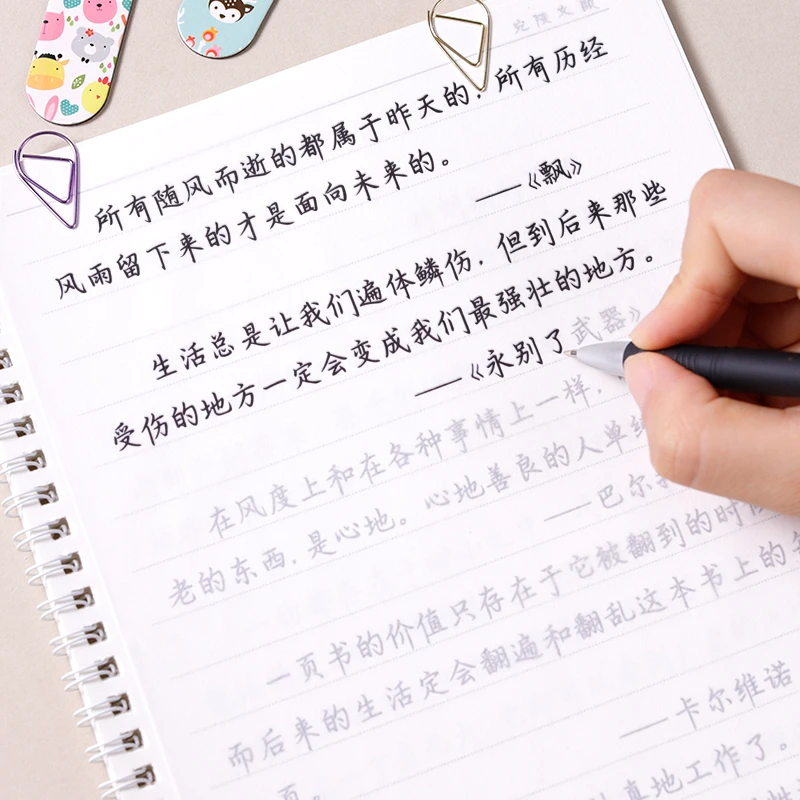 所有随风而逝的都属于昨天的，所有历经
风雨留下来的才是面向未来的。
——《飘》
生活总是让我们遍体鳞伤，但到后来那些
受伤的地方一定会变成我们最强壮的地方。
——《永别了武器》
在风度上和在各种事情上一样，
老的东西，是心地。心地善良的人单纯
——巴尔
一页书的价值只存在于它被翻到的时候
而后来的生活定会翻遍和翻乱这本书上的每
页。
——卡尔维诺
真地工作了。